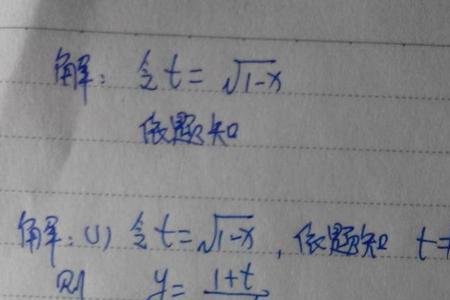 解：令 t = √1-x
依题知
解：(1) 令 t = √1-x ，依题知 t
则 y = 1+t